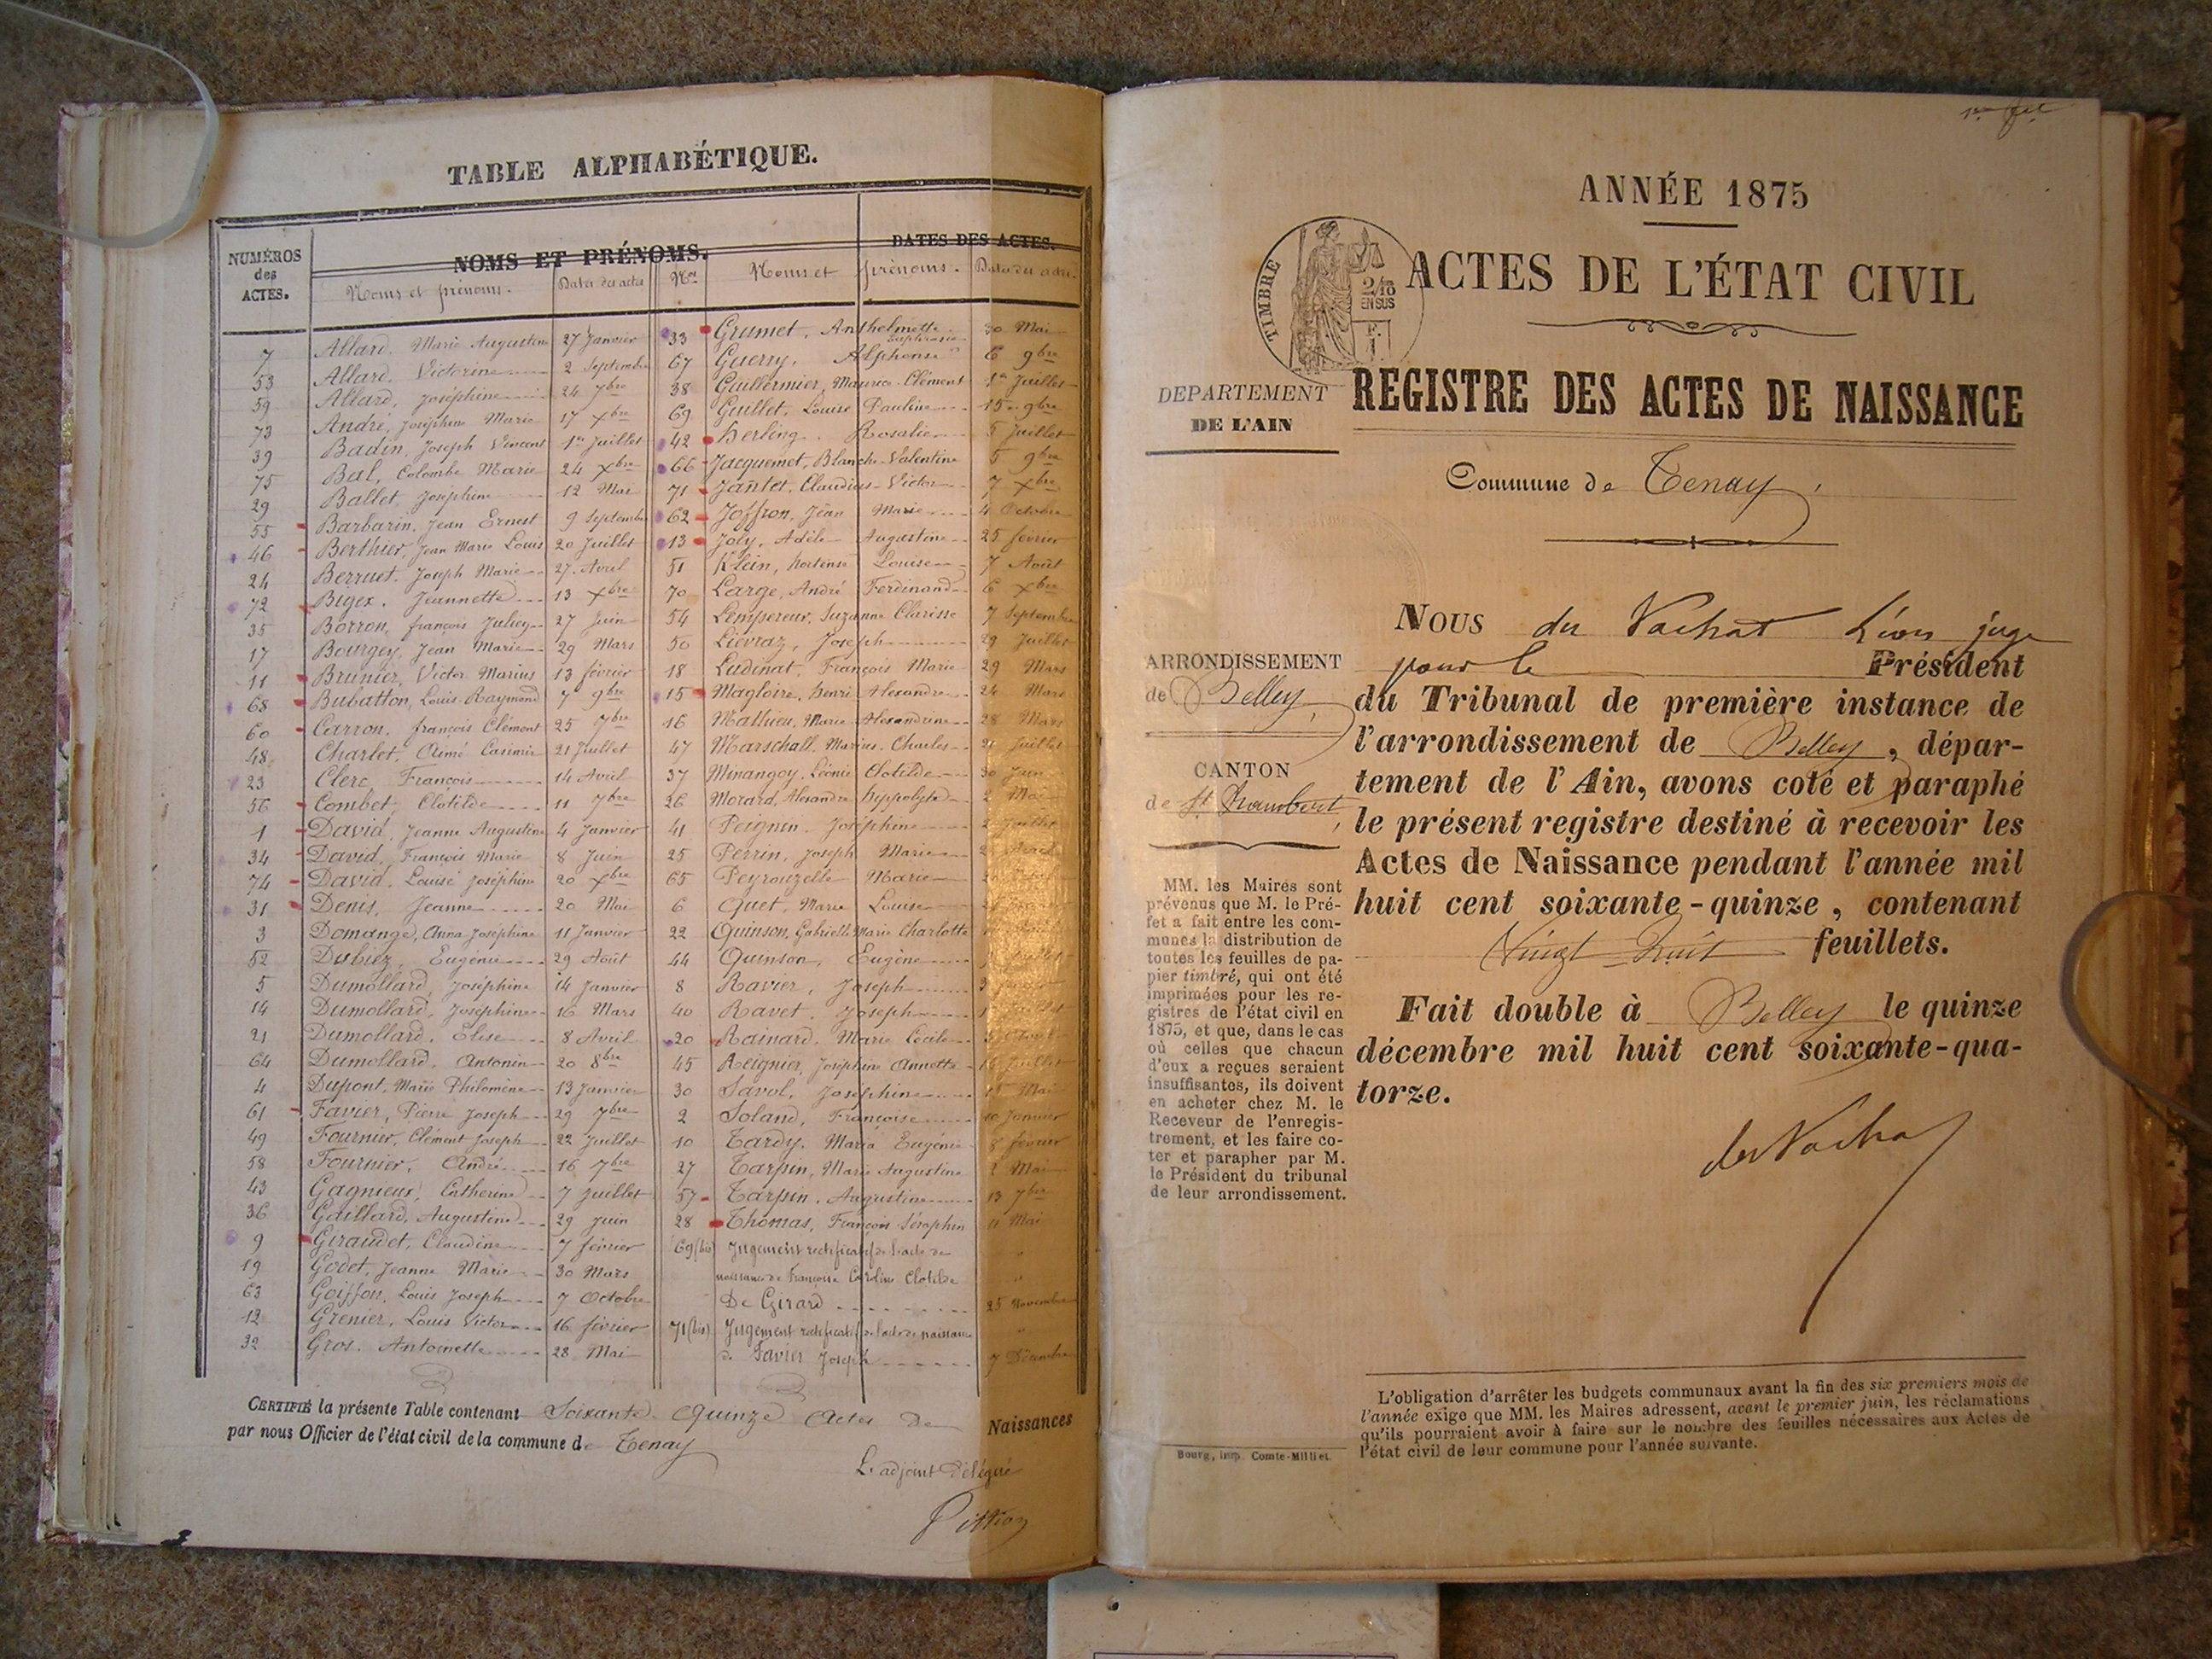 TABLE ALPHABÉTIQUE.
NUMÉROS des ACTES.
NOMS ET PRÉNOMS.
DATES DES ACTES.
Noms et prénoms. Dates des actes Nos Noms et prénoms. Date des actes.
7 Allard, Marie Augustine 27 Janvier
53 Allard, Victorine 2 Septembre
59 Allard, Joséphine 24 7bre
73 André, Joséphine Marie 17 Xbre
39 Badin, Joseph Vincent 1er Juillet
75 Bal, Colombe Marie 24 Xbre
29 Ballet Joséphine 12 Mai
55 Barbarin, Jean Ernest 9 Septembre
46 Berthier, Jean Marie Louis 20 Juillet
24 Berruet, Joseph Marie 27 Avril
72 Bigex, Jeannette 13 Xbre
35 Borron, françois Julien 27 Juin
17 Bourgey, Jean Marie 29 Mars
11 Brunier, Victor Marius 13 février
68 Bubatton, Louis Raymond 7 9bre
60 Carron, françois Clément 25 7bre
48 Charlet, Aimé Casimir 21 Juillet
23 Clerc, François 14 Avril
56 Combet, Clotilde 11 7bre
1 David, Jeanne Augustine 4 Janvier
34 David, François Marie 8 Juin
74 David, Louise Joséphine 20 Xbre
31 Denis, Jeanne 20 Mai
3 Domange, Anna Joséphine 11 Janvier
52 Dubiez, Eugénie 29 Août
5 Dumollard, Joséphine 14 Janvier
14 Dumollard, Joséphine 16 Mars
21 Dumollard, Elise 8 Avril
64 Dumollard, Antonin 20 8bre
4 Dupont, Marie Philomène 13 Janvier
61 Favier, Pierre Joseph 29 7bre
49 Fournier, Clément Joseph 22 Juillet
58 Fournier, André 16 7bre
43 Gagnieux, Catherine 7 Juillet
36 Gaillard, Augustine 29 Juin
9 Giraudet, Claudine 7 février
19 Godet, Jeanne Marie 30 Mars
63 Goiffon, Louis Joseph 7 Octobre
12 Grenier, Louis Victor 16 février
32 Gros, Antoinette 28 Mai
33 Grumet, Anthelmette Euphrasie 30 Mai
67 Guerry, Alphonse 6 9bre
38 Guillermier, Maurice Clément 1er Juillet
69 Guillet, Louise Pauline 15 9bre
42 Herling, Rosalie 5 Juillet
66 Jacquemet, Blanche Valentine 5 9bre
71 Jantet, Claudius Victor 7 Xbre
62 Joffron, Jean Marie 4 Octobre
13 Joly, Adèle Augustine 25 février
51 Klein, hortense Louise 7 Août
70 Large, André Ferdinand 6 Xbre
54 Lempereur, Suzanne Clarisse 7 Septembre
50 Lievraz, Joseph 29 Juillet
18 Ludinat, François Marie 29 Mars
15 Magloire, henri Alexandre 24 Mars
16 Mathieu, Marie Alexandrine 28 Mars
47 Marschall, Marius Charles 21 Juillet
37 Minangoy, Léonie Clotilde 30 Juin
26 Morard, Alexandre hyppolyte 2 Mai
41 Peignin, Joséphine 2 Juillet
25 Perrin, Joseph Marie
65 Peyrouzelle Marie
6 Quet, Marie Louise
22 Quinson, Gabrielle Marie Charlotte
44 Quinson, Eugène
8 Ravier, Joseph
40 Ravet, Joseph
20 Rainard, Marie Cécile
45 Reignier, Joséphine Annette Juillet
30 Savol, Joséphine Mai
2 Soland, Françoise 10 Janvier
10 Tardy, Maria Eugénie 8 février
27 Tarpin, Marie Augustine 2 Mai
57 Tarpin, Augustine 13 7bre
28 Thomas, François Séraphin 11 Mai
69 (bis) Jugement rectificatif de l'acte de "
naissance de Françoise Caroline Clotilde "
De Girard 25 Novembre
71 (bis) Jugement rectificatif de l'acte de naissance "
de Favier Joseph 7 Décembre
CERTIFIÉ la présente Table contenant Soixante Quinze Actes De Naissances
par nous Officier de l'état civil de la commune de Tenay
L'adjoint délégué
Pittion
ANNÉE 1875
TIMBRE
2/10
EN SUS
ACTES DE L'ÉTAT CIVIL
DEPARTEMENT
DE L'AIN
REGISTRE DES ACTES DE NAISSANCE
Commune de Tenay
ARRONDISSEMENT
de Belley
CANTON
de St Rambert
MM. les Maires sont
prévenus que M. le Pré-
fet a fait entre les com-
munes la distribution de
toutes les feuilles de pa-
pier timbré, qui ont été
imprimées pour les re-
gistres de l'état civil en
1875, et que, dans le cas
où celles que chacun
d'eux a reçues seraient
insuffisantes, ils doivent
en acheter chez M. le
Receveur de l'enregis-
trement, et les faire co-
ter et parapher par M.
le Président du tribunal
de leur arrondissement.
NOUS du Vachat Léon juge
pour le Président
du Tribunal de première instance de
l'arrondissement de Belley, dépar-
tement de l'Ain, avons coté et paraphé
le présent registre destiné à recevoir les
Actes de Naissance pendant l'année mil
huit cent soixante-quinze, contenant
Vingt huit feuillets.
Fait double à Belley le quinze
décembre mil huit cent soixante-qua-
torze.
du Vachat
L'obligation d'arrêter les budgets communaux avant la fin des six premiers mois de
l'année exige que MM. les Maires adressent, avant le premier juin, les réclamations
qu'ils pourraient avoir à faire sur le nombre des feuilles nécessaires aux Actes de
l'état civil de leur commune pour l'année suivante.
Bourg, imp. Comte-Milliet